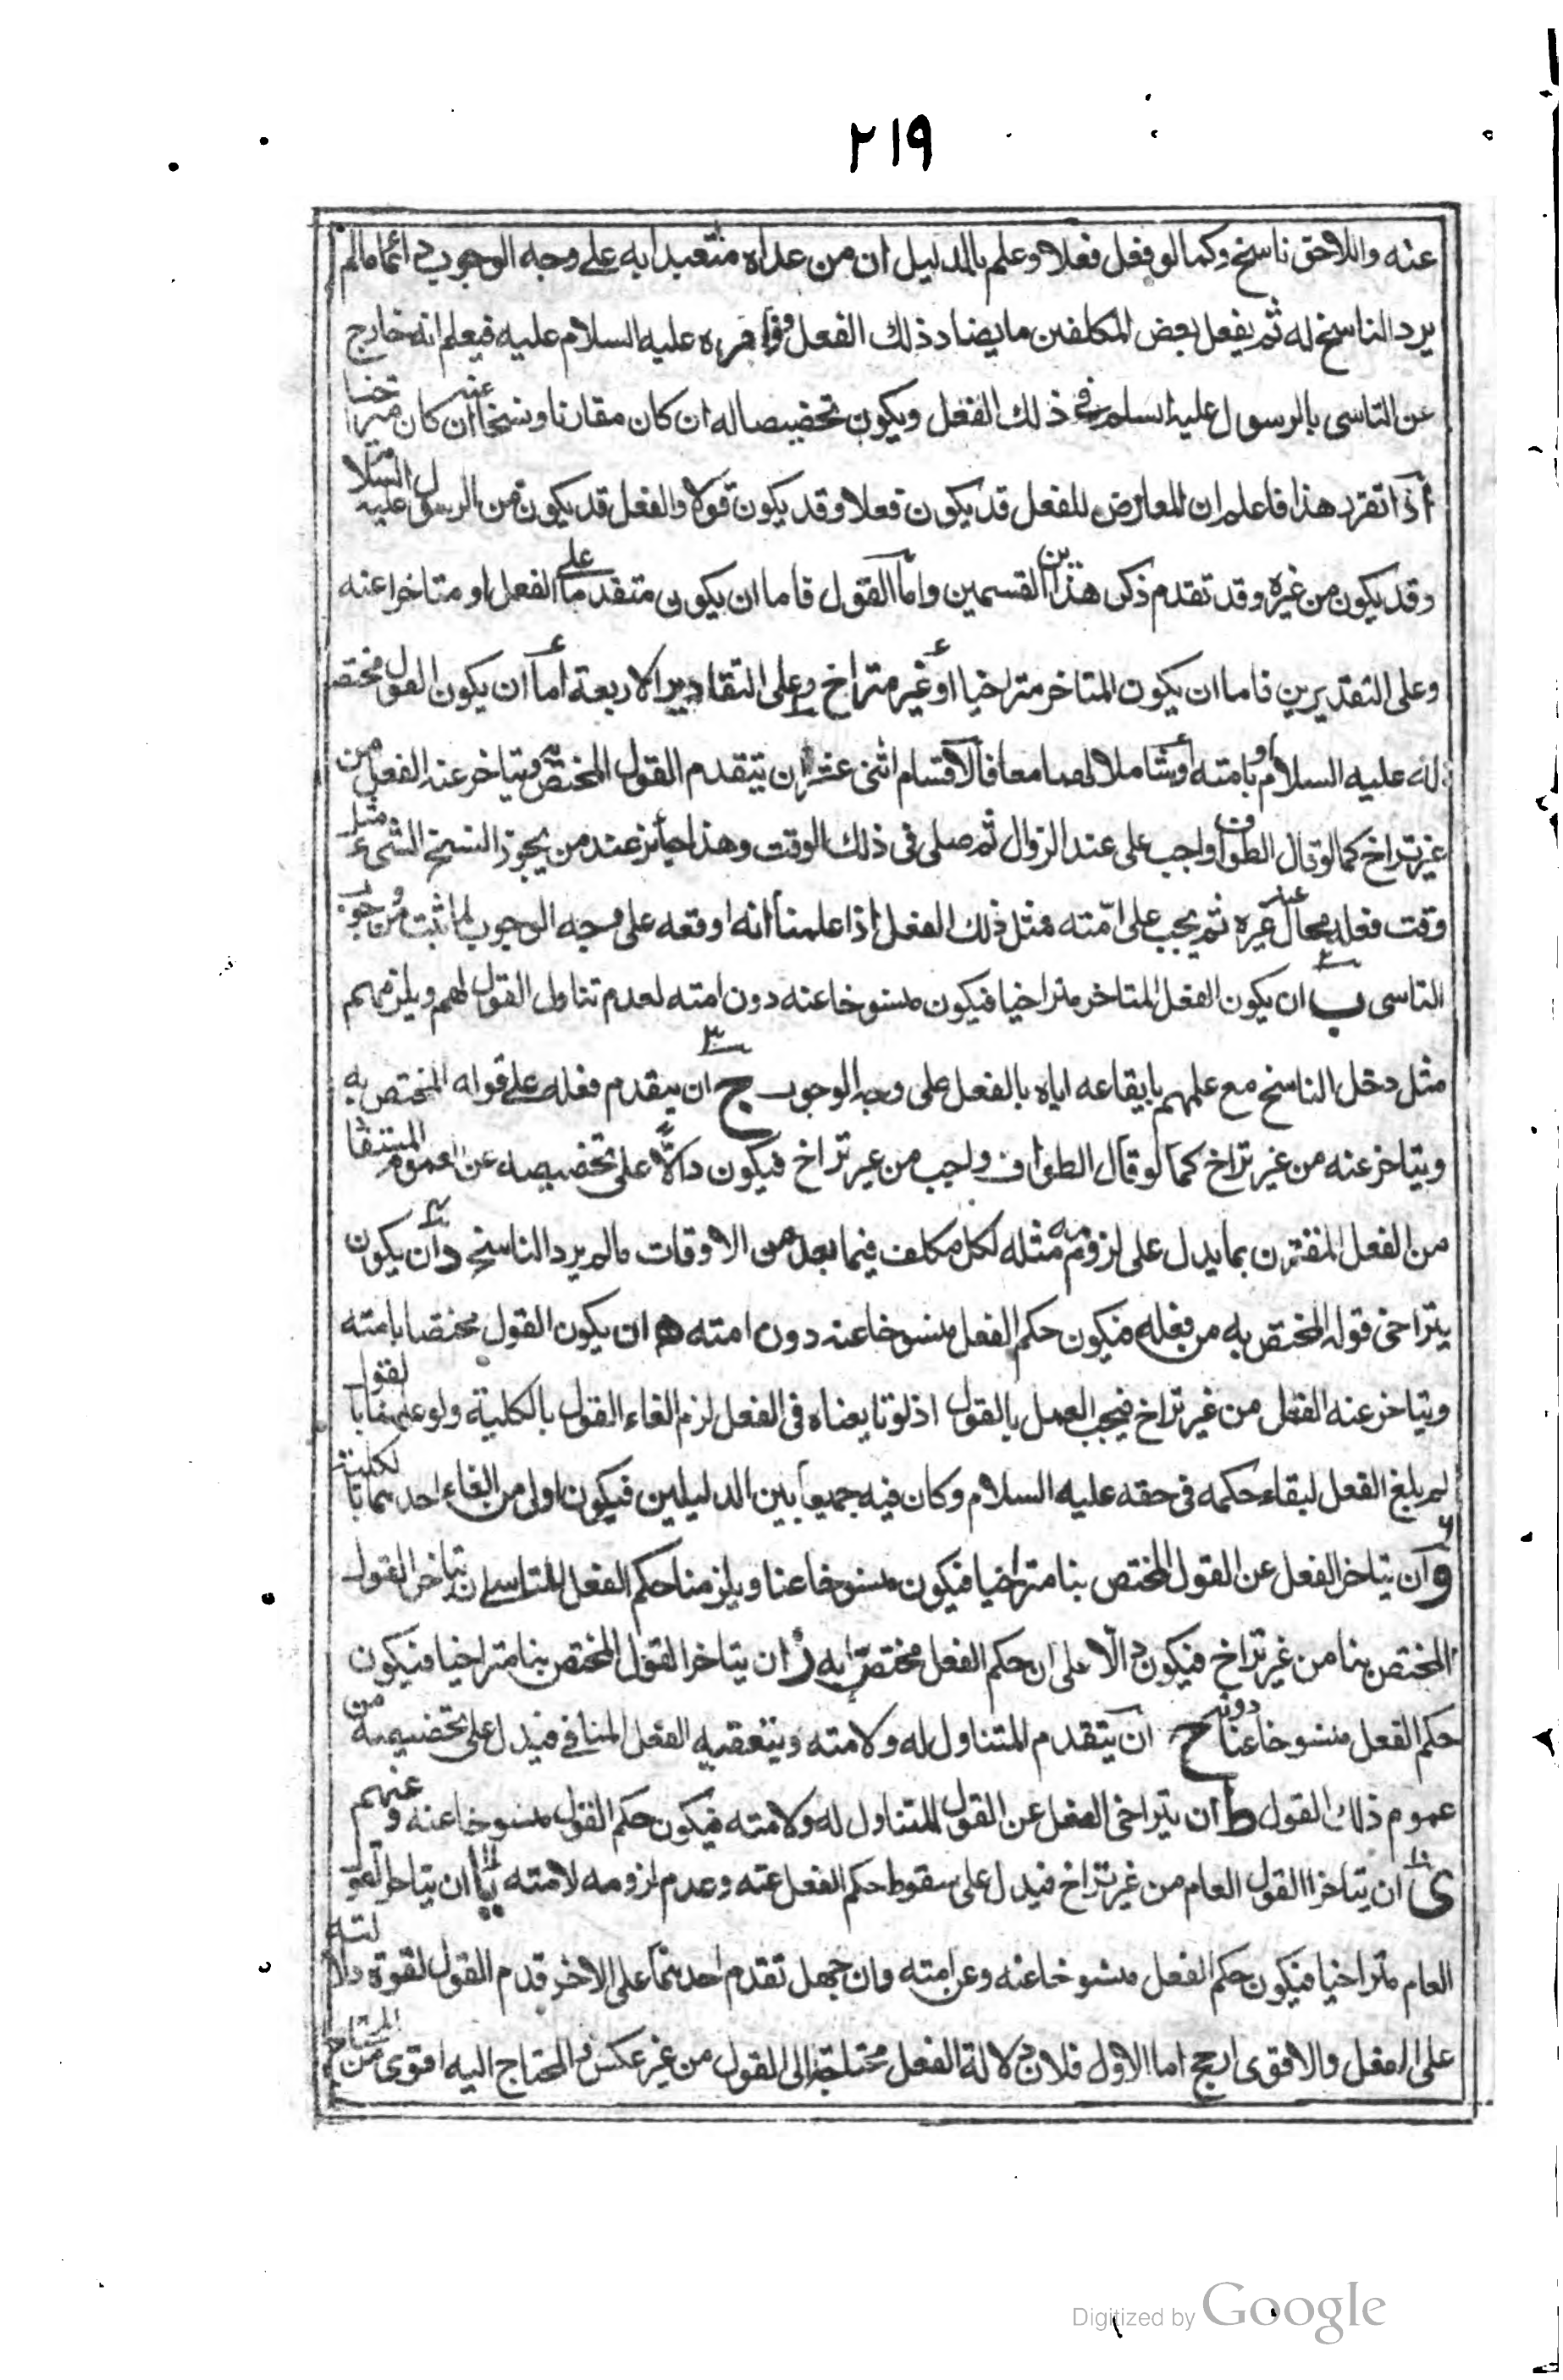 ٢١٩
عنه واللاحق ناسخ وكما لو فعل فعلا وعلم بالدليل ان من عداه متعبدا به على وجه الوجوب دائما ما لم
يرد الناسخ له ثم يفعل بعض المكلفين ما يضاد ذلك الفعل واقره عليه السلام عليه فيعلم انه خارج
عن التاسى بالرسول عليه السلم فى ذلك الفعل ويكون تخصيصا له ان كان مقارنا ونسخا عنه ان كان متراخيا
اذا تقرر هذا فاعلم ان المعارض للفعل قد يكون فعلا وقد يكون قولا والفعل قد يكون من الرسول عليه السلا
وقد يكون من غيره وقد تقدم ذكر هذين القسمين واما القول فاما ان يكون متقدما على الفعل او متاخرا عنه
وعلى التقديرين فاما ان يكون المتاخر متراخيا او غير متراخ وعلى التقادير الاربعة اما ان يكون القول مختصا
له عليه السلام او بامته او شاملا لهما معا فالاقسام اثنى عشر ا ان يتقدم القول المختص به ويتاخر عنه الفعل من
غير تراخ كما لو قال الطواف واجب على عند الزوال ثم صلى فى ذلك الوقت وهذا جايز عند من يجوز النسخ الشىء قبل
وقت فعله محال عند غيره ثم يجب على امته مثل ذلك الفعل اذا علمنا انه اوقعه على وجه الوجوب لما ثبت من وجوب
التاسى ب ان يكون الفعل المتاخر متراخيا فيكون منسوخا عنه دون امته لعدم تناول القول لهم ويلزمهم
مثل دخل الناسخ مع علمهم بايقاعه اياه بالفعل على وجه الوجوب ج ان يتقدم فعله على قوله المختص به
ويتاخر عنه من غير تراخ كما لو قال الطواف واجب من غير تراخ فيكون دالا على تخصيصه عن العموم المستفا
من الفعل المقترن بما يدل على لزوم مثله لكل مكلف فيما بعد من الاوقات ما لم يرد الناسخ د ان يكون
يتراخى قوله المختص به من فعله فيكون حكم الفعل منسوخا عنه دون امته ه ان يكون القول مختصا بامته
ويتاخر عنه الفعل من غير تراخ فيجب العمل بالقول اذ لو تابعناه فى الفعل لزم الغاء القول بالكلية ولو علمنا بالقول
لم يلغ الفعل لبقاء حكمه فى حقه عليه السلام وكان فيه جميعا بين الدليلين فيكون اولى من الغاء احدهما بالكلية
و ان يتاخر الفعل عن القول المختص بنا متراخيا فيكون منسوخا عنا ويلزمنا حكم الفعل للتاسى ان يتاخر القول
المختص بنا من غير تراخ فيكون دالا على ان حكم الفعل مختص به ز ان يتاخر القول المختص بنا متراخيا فيكون
حكم الفعل منسوخا عنا دونه ح ان يتقدم المتناول له ولامته ويتعقبه الفعل المنافى فيدل على تخصيصه من
عموم ذلك القول ط ان يتراخى الفعل عن القول المتناول له ولامته فيكون حكم القول منسوخا عنه وعنهم
ى ان يتاخر القول العام من غير تراخ فيدل على سقوط حكم الفعل عنه وعدم لزومه لامته يا ان يتاخر القو
العام متراخيا فيكون حكم الفعل منسوخا عنه وعن امته وان جهل تقدم احدهما على الاخر قدم القول لقوة دلالته
على الفعل والاقوى ارجح اما الاول فلان دلالة الفعل محتاجة الى القول من غير عكس والمحتاج اليه اقوى من المحتاج
Digitized by Google